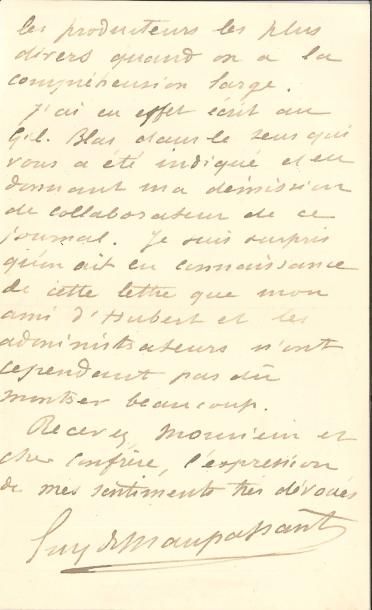 les producteurs les plus
divers quand on a la
compréhension large.
J'ai en effet écrit au
Gil. Blas dans le sens qui
vous a été indiqué et en
donnant ma démission
de collaborateur de ce
journal. Je suis surpris
qu'on ait eu connaissance
de cette lettre que mon
ami d'Hubert et les
administrateurs n'ont
cependant pas dû
montrer beaucoup.
Recevez, Monsieur et
cher confrère, l'expression
de mes sentiments très dévoués
Guy de Maupassant